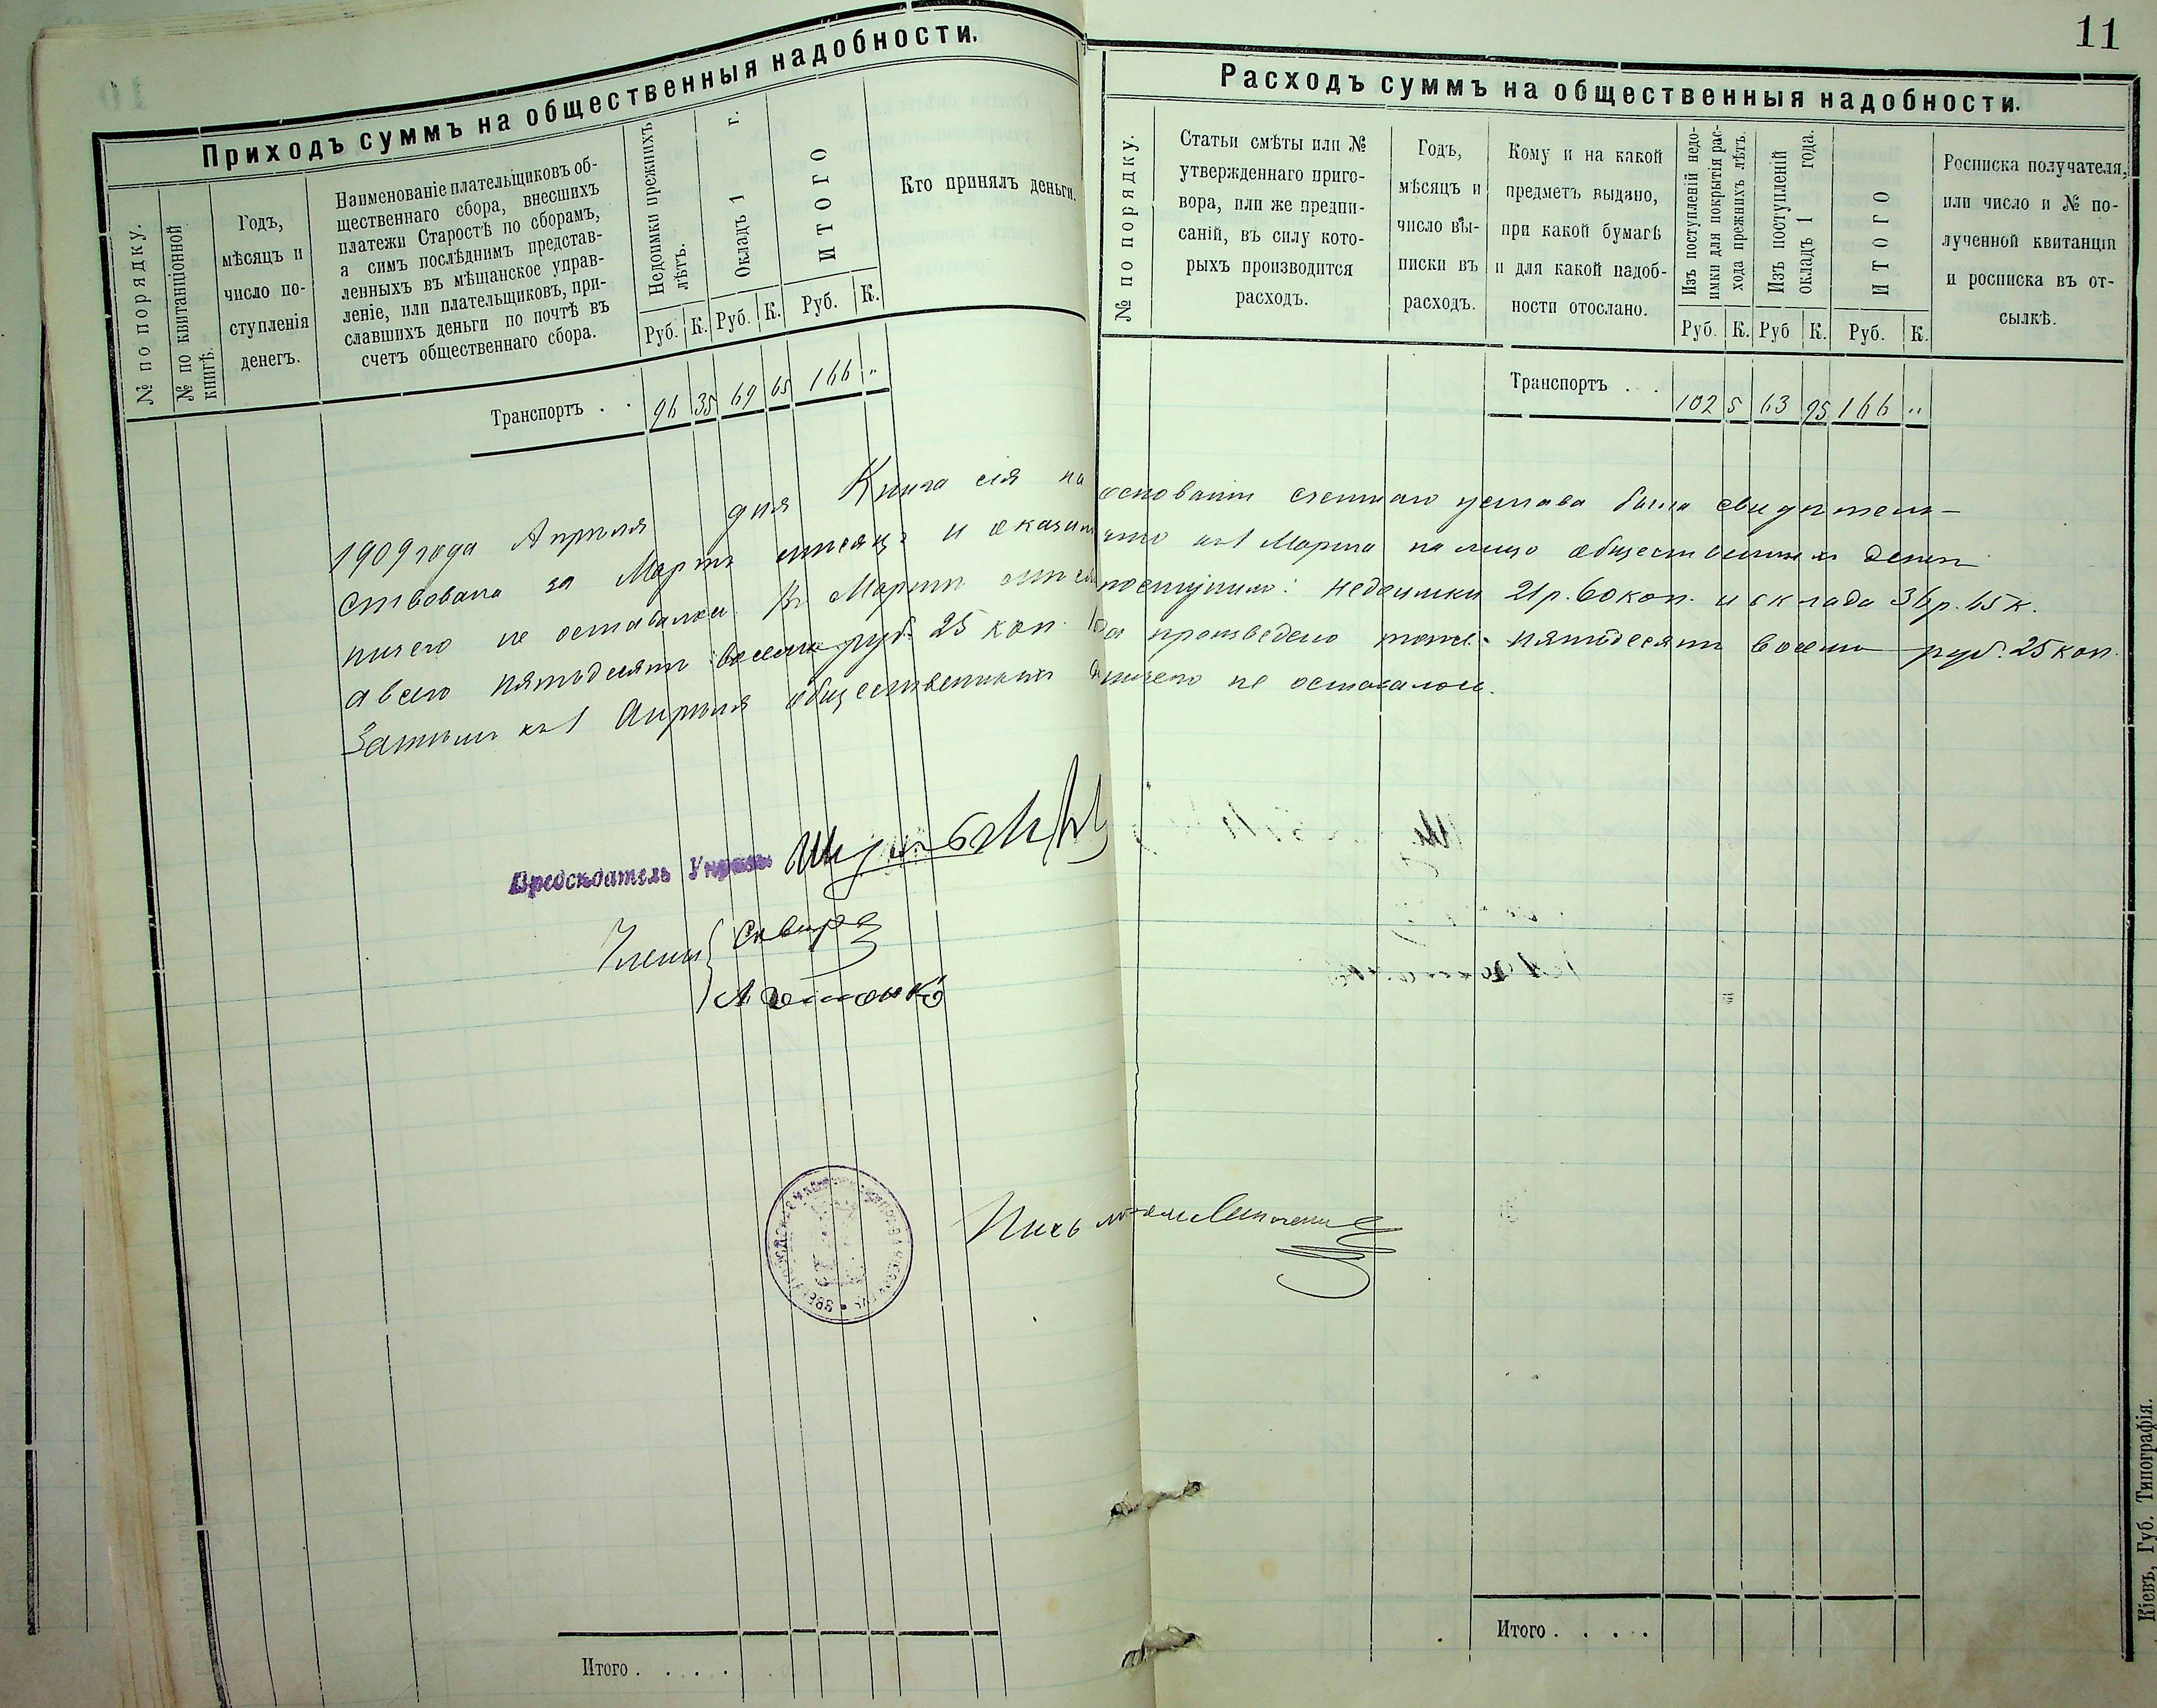 11
Приходъ суммъ на общественныя надобности.
№ по порядку.
№ по квитанціонной книгѣ.
Годъ,
мѣсяцъ и
число по-
ступленія
денегъ.
Наименованіе плательщиковъ об-
щественнаго сбора, внесшихъ
платежи Старостѣ по сборамъ,
а симъ послѣднимъ представ-
ленныхъ въ мѣщанское управ-
леніе, или плательщиковъ, при-
славшихъ деньги по почтѣ въ
счетъ общественнаго сбора.
Недоимки прежнихъ
лѣтъ.
Окладъ 1 г.
ИТОГО
Кто принялъ деньги.
Руб. К. Руб. К. Руб. К.
Транспортъ . . 96 35 69 65 166 "
Расходъ суммъ на общественныя надобности.
№ по порядку.
Статьи смѣты или №
утвержденнаго приго-
вора, или же предпи-
саній, въ силу кото-
рыхъ производится
расходъ.
Годъ,
мѣсяцъ и
число вы-
писки въ
расходъ.
Кому и на какой
предметъ выдано,
при какой бумагѣ
и для какой надоб-
ности отослано.
Изъ поступленій недо-
имки для покрытія рас-
хода прежнихъ лѣтъ.
Изъ поступленій
окладъ 1 года.
ИТОГО
Росписка получателя,
или число и № по-
лученной квитанціи
и росписка въ от-
сылкѣ.
Руб. К. Руб К. Руб. К.
Транспортъ . . 102 5 63 95 166 "
1909 года Апрѣля дня Книга сія на основаніи счетнаго устава была свидѣтель-
ствована за Мартъ мѣсяцъ и что къ 1 Марта на лицо общественныхъ денегъ
ничего не оставалось. Въ Мартѣ поступило: недоимки 21 р. 60 коп. и оклада 36 р. 65 к.
а всего пятьдесятъ восемь руб. 25 коп. произведено тоже пятьдесятъ восемь руб. 25 коп.
Затѣмъ къ 1 Апрѣля общественныхъ ничего не оставалось.
Предсѣдатель Управы
Члены Сквира
Итого . . . .
Итого . . . .
Кіевъ, Губ. Типографія.